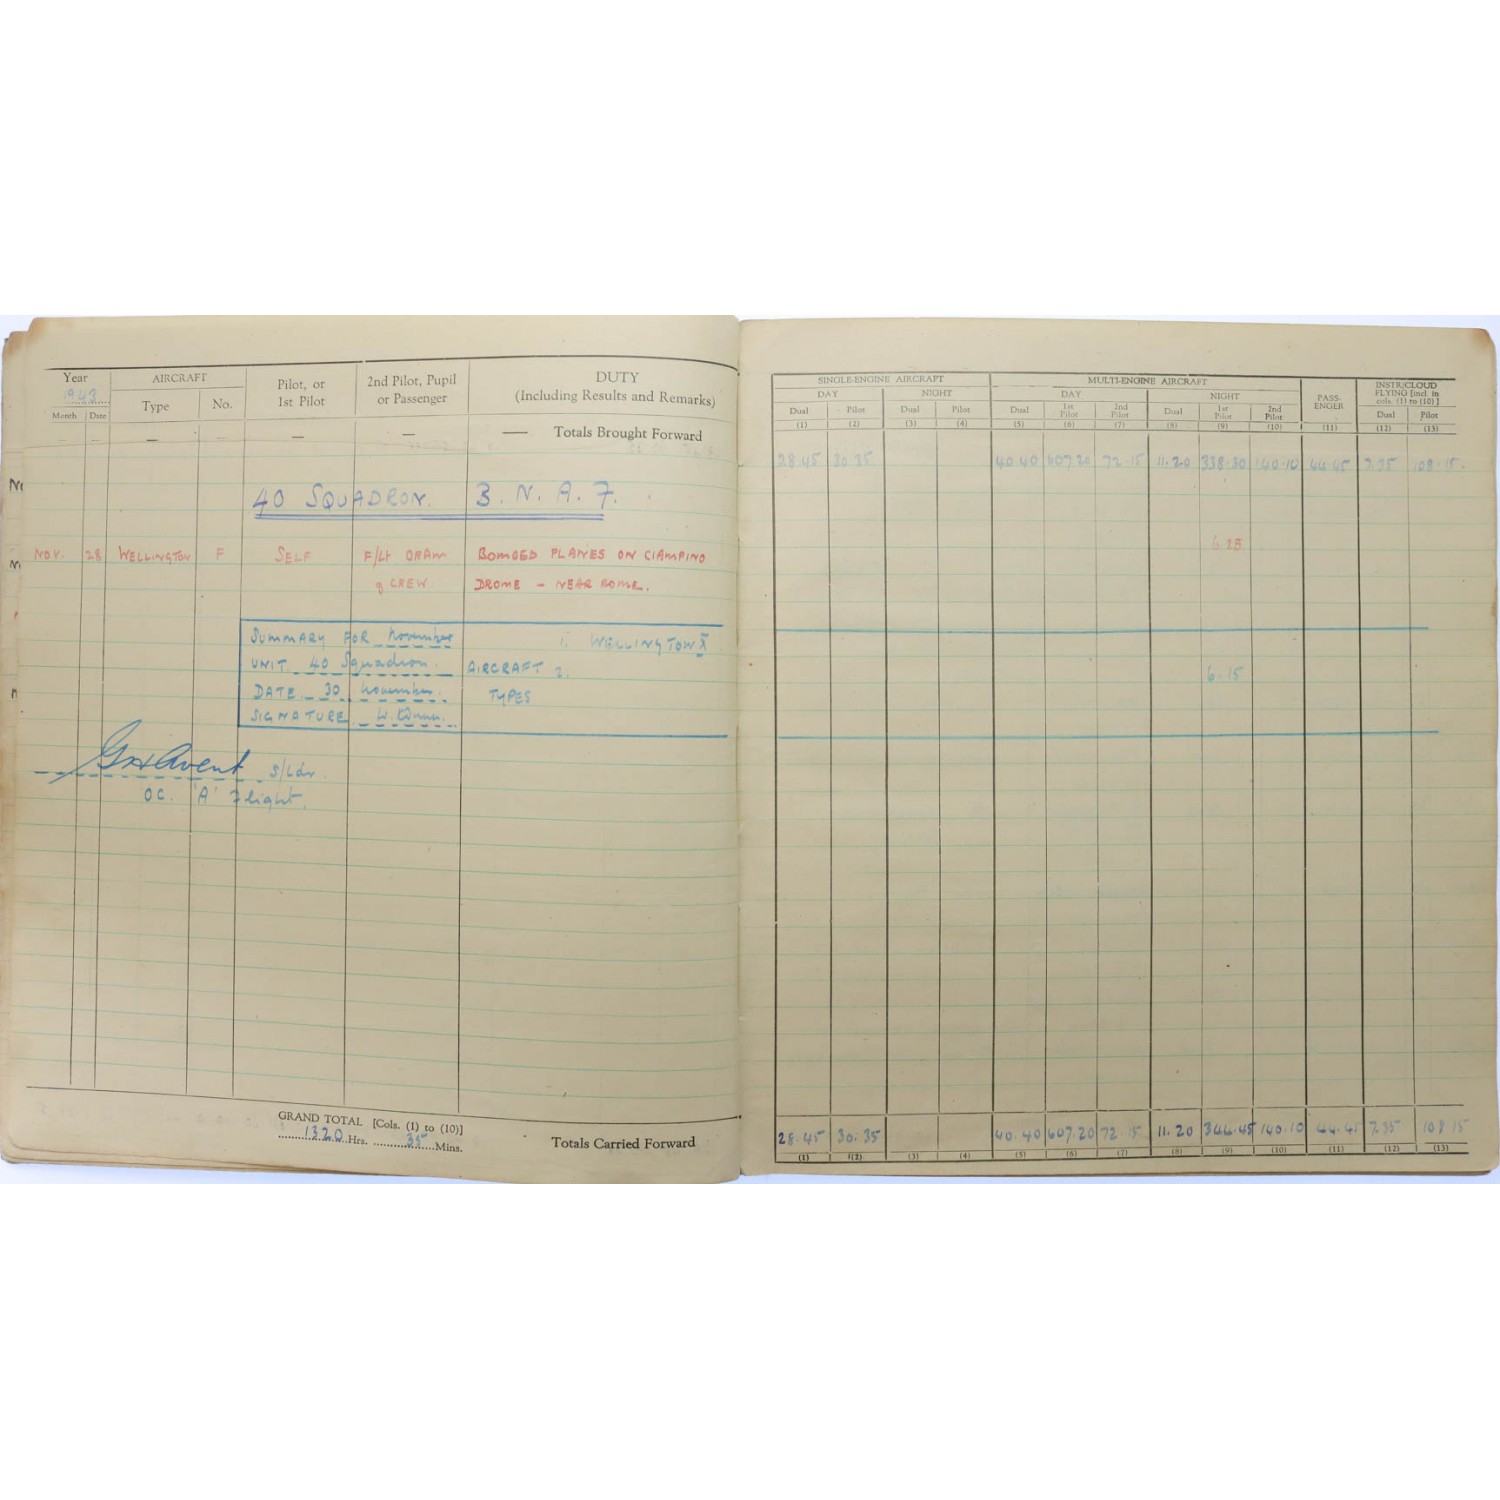 Year 1943 AIRCRAFT Pilot, or 1st Pilot 2nd Pilot, Pupil or Passenger DUTY (Including Results and Remarks)
Month Date Type No.
— — — — — — — Totals Brought Forward
40 SQUADRON. B.N.A.F.
NOV. 28 WELLINGTON F SELF F/Lt ORAM BOMBED PLANES ON CIAMPINO
& CREW. DROME – NEAR ROME.
SUMMARY FOR November 1. WELLINGTON X
UNIT 40 Squadron. AIRCRAFT 2.
DATE 30 November. TYPES
SIGNATURE
S/Ldr.
OC. 'A' Flight.
GRAND TOTAL [Cols. (1) to (10)]
1320 Hrs. 35 Mins.
Totals Carried Forward
SINGLE-ENGINE AIRCRAFT MULTI-ENGINE AIRCRAFT PASS-ENGER INSTR/CLOUD FLYING [incl. in cols. (1) to (10)]
DAY NIGHT DAY NIGHT
Dual Pilot Dual Pilot Dual 1st Pilot 2nd Pilot Dual 1st Pilot 2nd Pilot Dual Pilot
(1) (2) (3) (4) (5) (6) (7) (8) (9) (10) (11) (12) (13)
28.45 30.35 40.40 607.20 72.15 11.20 338.30 140.10 44.45 7.35 108.15.
6.15
28.45 30.35 40.40 607.20 72.15 11.20 344.45 140.10 44.45 7.35 108.15
(1) (2) (3) (4) (5) (6) (7) (8) (9) (10) (11) (12) (13)